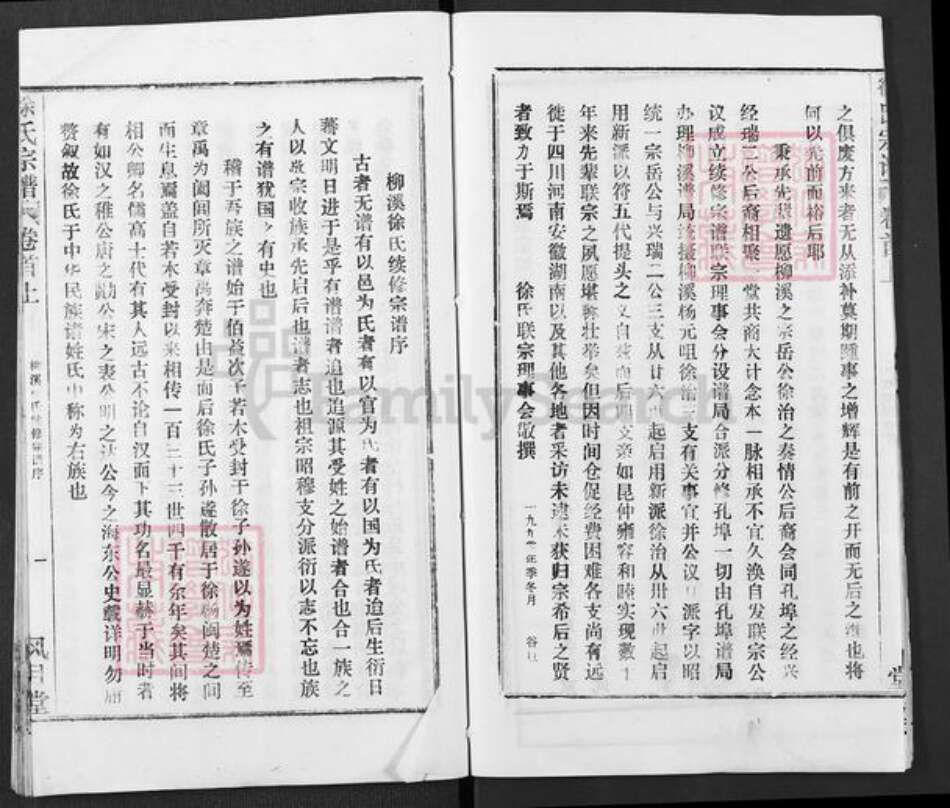 之俱废方来者无从添补莫期踵事之增辉是有前之开而无后之继也将
何以光前而裕后耶
秉承先辈遗愿柳溪之宗岳公徐治之秦情公后裔会同孔埠之经兴
经瑞二公后裔相聚一堂共商大计念本一脉相承不宜久涣自发联宗公
议成立续修宗谱联宗理事会分设谱局合派分修孔埠一切由孔埠谱局
办理柳溪谱局统摄柳溪杨元咀徐治三支有关事宜并公议派字以昭
统一宗岳公与兴瑞二公三支从廿六世起启用新派徐治从卅六世起启
用新派以符五代提头之义自兹而后明文章如昆仲雍容和睦实现数十
年来先辈联宗之夙愿堪称壮举矣但因时间仓促经费困难各支尚有远
徙于四川河南安徽湖南以及其他各地者采访未逮未获归宗希后之贤
者致力于斯焉
徐氏联宗理事会敬撰
一九九 年季冬月 谷
堂
柳溪徐氏续修宗谱序
古者无谱有以邑为氏者有以官为氏者有以国为氏者迨后生衍日
蕃文明日进于是乎有谱谱者追也追源其受姓之始谱者合也合一族之
人以敬宗收族承先启后也谱者志也祖宗昭穆支分派衍以志不忘也族
之有谱犹国之有史也
稽于吾族之谱始于伯益次子若木受封于徐子孙遂以为姓焉传至
章禹为阖闾所灭章禹奔楚由是而后徐氏子孙遂散居于徐杨闽楚之间
而生息焉盖自若木受封以来相传一百三十三世四千有余年矣其间将
相公卿名儒高士代有其人远古不论自汉而下其功名最显赫于当时者
有如汉之稚公唐之勣公宋之 公明之达公今之海东公史载详明勿庸
赘叙故徐氏于中华民族诸姓氏中称为右族也
徐氏宗谱 卷首上
柳溪徐氏续修宗谱序
一
风月堂
FamilySearch